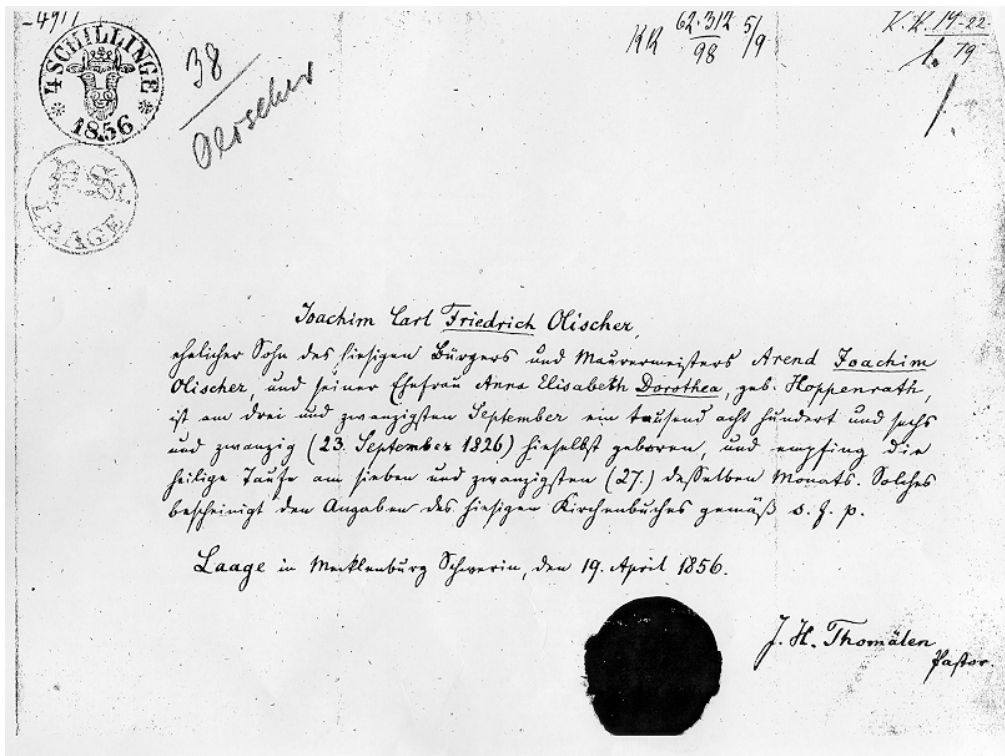 4 SCHILLINGE
1856
LAAGE
38
Olischer
KK 62.312 5/9
98
K. K. 14-22.
79
Joachim Carl Friedrich Olischer,
ehelicher Sohn des hiesigen Bürgers und Maurermeisters Arend Joachim
Olischer, und seiner Ehefrau Anna Elisabeth Dorothea, geb. Hoppenrath,
ist am drei und zwanzigsten September ein tausend acht hundert und sechs
und zwanzig (23. September 1826) hieselbst geboren, und empfing die
heilige Taufe am sieben und zwanzigsten (27.) desselben Monats. Solches
bescheinigt den Angaben des hiesigen Kirchenbuches gemäß s. f. p.
Laage in Mecklenburg Schwerin, den 19. April 1856.
J. H. Thomälen
Pastor.